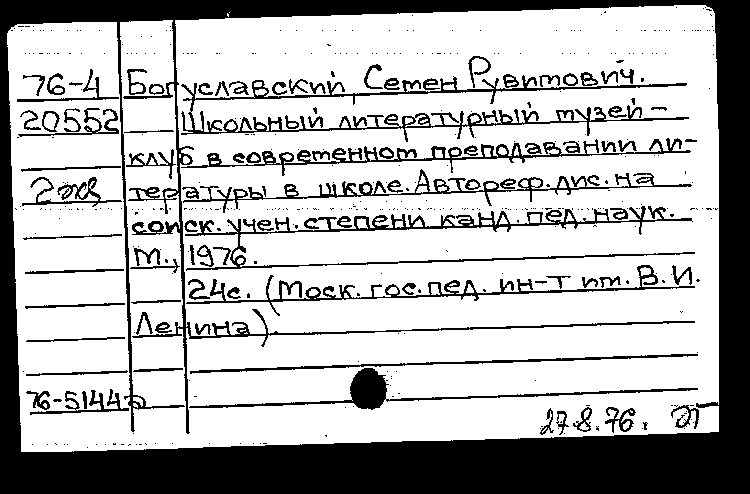 76-4 Богуславский, Семен Рувимович.
20552 Школьный литературный музей-
клуб в современном преподавании ли-
2экз тературы в школе. Автореф. дис. на
соиск. учен. степени канд. пед. наук.
М., 1976.
24с. (Моск. гос. пед. ин-т им. В. И.
Ленина).
76-51445
27.8.76.